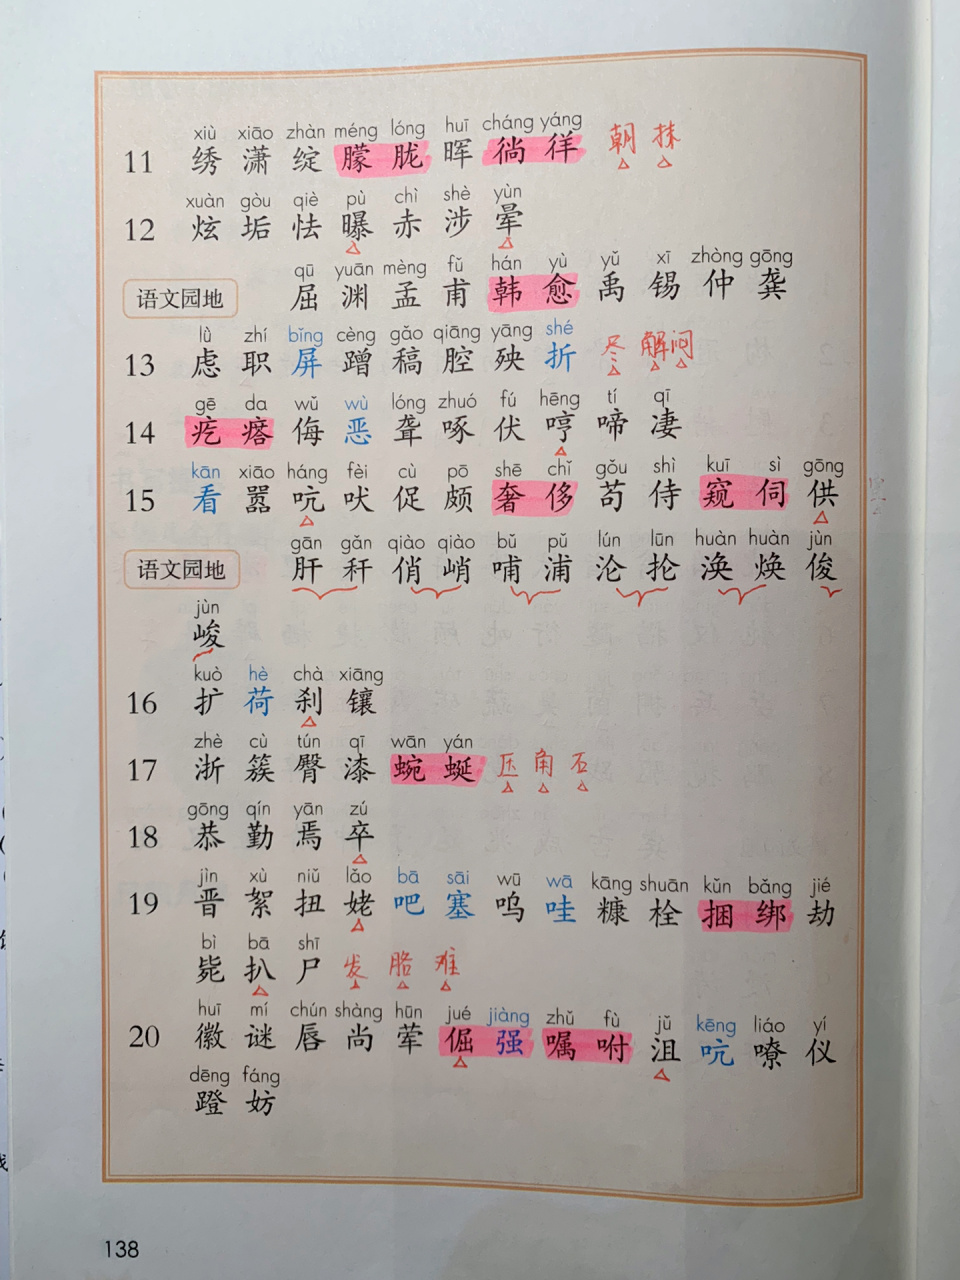 xiù xiāo zhàn méng lóng huī cháng yáng
11 绣 潇 绽 朦 胧 晖 徜 徉 朝 抹
xuàn gòu qiè pù chì shè yùn
12 炫 垢 怯 曝 赤 涉 晕
qū yuān mèng fǔ hán yù yǔ xī zhòng gōng
语文园地 屈 渊 孟 甫 韩 愈 禹 锡 仲 龚
lǜ zhí bǐng cèng gǎo qiāng yāng shé
13 虑 职 屏 蹭 稿 腔 殃 折 尽 解 闷
gē da wǔ wù lóng zhuó fú hēng tí qī
14 疙 瘩 侮 恶 聋 啄 伏 哼 啼 凄
kān xiāo háng fèi cù pō shē chǐ gǒu shì kuī sì gōng
15 看 嚣 吭 吠 促 颇 奢 侈 苟 侍 窥 伺 供
gān gǎn qiào qiào bǔ pǔ lún lūn huàn huàn jùn
语文园地 肝 秆 俏 峭 哺 浦 沦 抡 涣 焕 俊
jùn
峻
kuò hè chà xiāng
16 扩 荷 刹 镶
zhè cù tún qī wān yán
17 浙 簇 臀 漆 蜿 蜒 压 角 石
gōng qín yān zú
18 恭 勤 焉 卒
jìn xù niǔ lǎo bā sāi wū wā kāng shuān kǔn bǎng jié
19 晋 絮 扭 姥 吧 塞 呜 哇 糠 栓 捆 绑 劫
bì bā shī
毙 扒 尸 发 胳 难
huī mí chún shàng hūn jué jiàng zhǔ fù jǔ kēng liáo yí
20 徽 谜 唇 尚 荤 倔 强 嘱 咐 沮 吭 嘹 仪
dēng fáng
蹬 妨
138